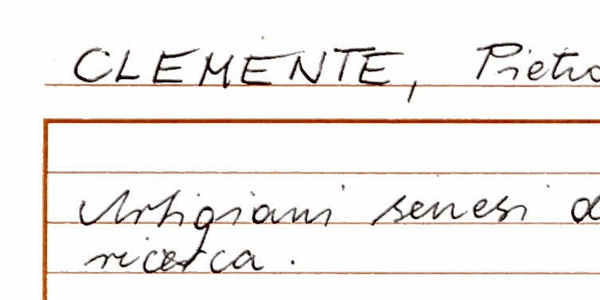 CLEMENTE, Pietro
Artigiani senesi d
ricerca.